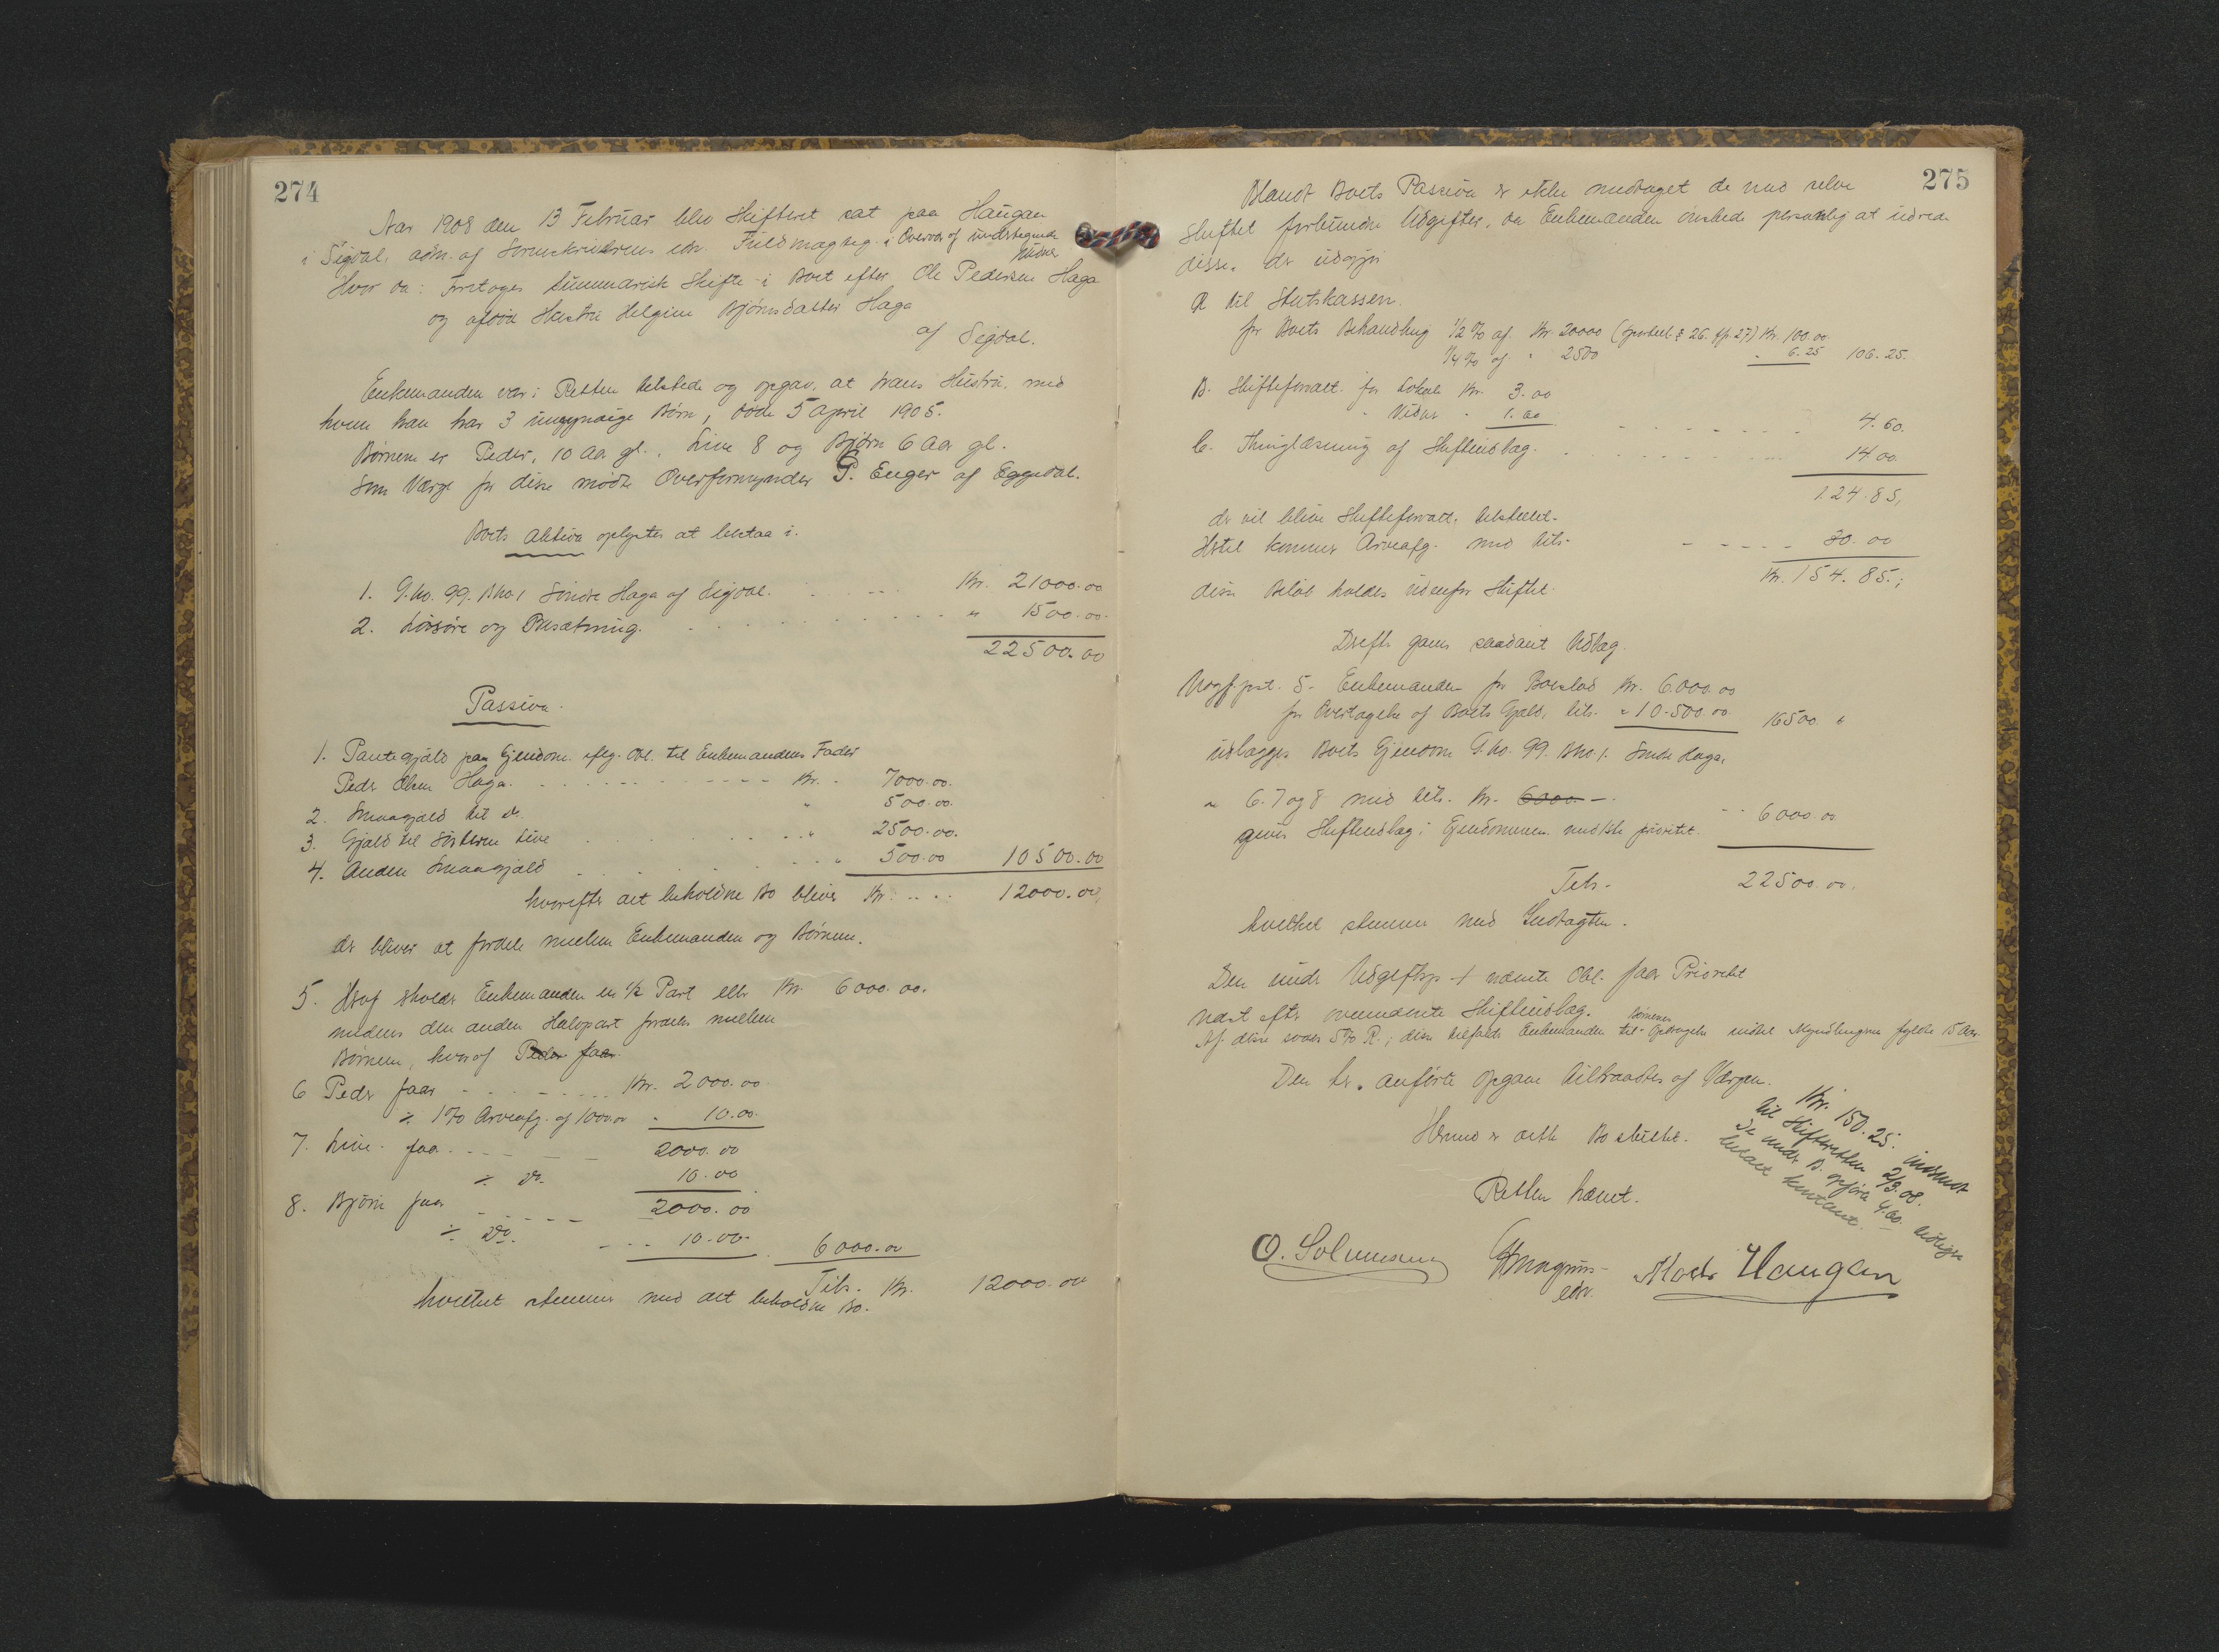 274
Aar 1908 den 13 Februar blev Skifteret sat paa Haugan
i Sigdal, adm. af Sorenskriverens edsv. Fuldmægtig i Overvær af undertegnede
Vidner
Hvor da: Foretoges Summarisk Skifte i Boet efter Ole Pedersen Haga
og afdøde Hustru Helgine Bjørnsdatter Haga
af Sigdal.
Enkemanden var i Retten tilstede og opgav, at hans Hustru, med
hvem han har 3 umyndige Børn, døde 5 April 1905.
Børnene er Peder, 10 Aar gl., Live 8 og Bjørn 6 Aar gl.
Som Værge for disse mødte Overformynder P. Enger af Eggedal.
Boets Aktiva oplystes at bestaa i.
1. G.No. 99. B.No. 1 Søndre Haga af Sigdal. Kr. 21000.00
2. Løsøre og Besætning. " 1500.00
22500.00
Passiva.
1. Pantegjæld paa Ejendom. eflg. Obl. til Enkemandens Fader
Peder Olsen Haga. Kr. 7000.00.
2. Smaagjæld til do. " 500.00.
3. Gjæld til Søsteren Live " 2500.00.
4. Anden Smaagjæld " 500.00 10500.00
hvorefter det beholdne Bo bliver Kr. 12000.00,
der bliver at fordele mellem Enkemanden og Børnene.
5. Heraf tilkommer Enkemanden en 1/2 Part eller Kr. 6000.00.
medens den anden Halvpart fordeles mellem
Børnene, hvoraf Peder faar.
6 Peder faar Kr. 2000.00
÷ 1% Arveafg. af 1000.00 " 10.00.
7. Live faar 2000.00
÷ do. 10.00
8. Bjørn faar 2000.00
÷ do. 10.00 6000.00
Tils. Kr. 12000.00
hvilket stemmer med det beholdne Bo.
275
Blandt Boets Passiva er ikke medtaget de med selve
Skiftet forbundne Udgifter, da Enkemanden ønskede personlig at udrede
disse, der udgjør
A til Statskassen.
for Boets Behandling 1/2 % af Kr. 20000 (Sportell. § 26. jfr. 27) Kr. 100.00
1/4 % af " 2500 " 6.25 106.25.
B. Skifteforvalt. for Lokale Kr. 3.00
" Vidner " 1.60 4.60.
C. Thinglæsning af Skifteudlæg. 14.00
124.85,
der vil blive Skifteforvalt. tilstillet.
Hertil kommer Arveafg. med tils. 30.00
Kr. 154.85.;
disse Beløb holdes udenfor Skiftet.
Derefter gaves saadant Udlæg.
Udgf.post. 5. Enkemanden for Boeslod Kr. 6.000.00
for Overtagelse af Boets Gjæld, tils. " 10.500.00 16500 "
udlægges Boets Ejendom G.No. 99. B.No. 1. Søndre Haga,
" 6. 7 og 8 med tils. Kr. 6000 -
gives Skifteudlæg i Ejendommen med 1ste prioritet. 6000.00
Tils. 22500.00.
hvilket stemmer med Indtægten.
Den under Udgiftsp. 1 nævnte Obl. faar Prioritet
næst efter ovennævnte Skifteudlæg.
Børnenes
Af disse svares 5% R.; disse tilfalder Enkemanden til Opdragelse indtil Myndlingerne fylder 15 Aar.
Den her anførte Opgave tiltraadtes af Værgen.
Hermed er dette Bo sluttet.
Retten hævet.
Kr. 150.25. indsendt
til Skifteretten 2/3.08.
De under B. opførte 4.60 tidligere
betalt kontant.
O. Solumsmoen
edsv.
Mads Haugan